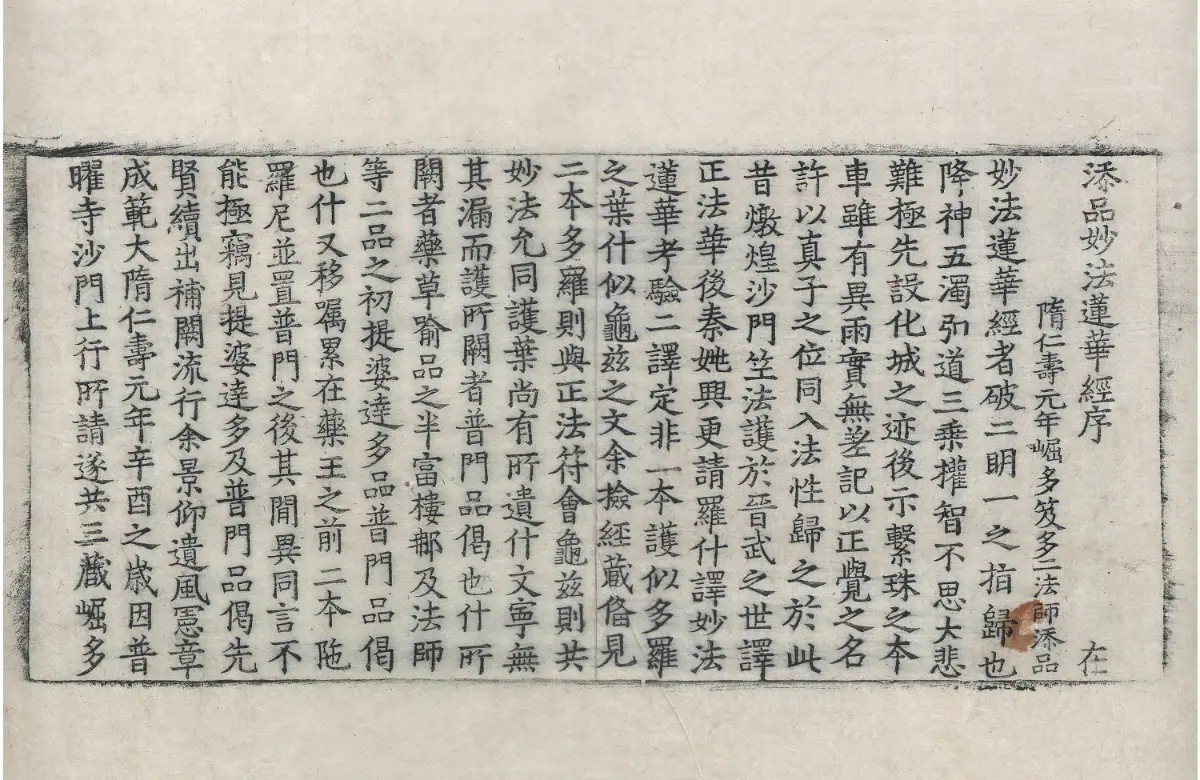 添品妙法蓮華經序 在
隋仁壽元年崛多笈多二法師添品
妙法蓮華經者破二明一之指歸也
降神五濁弘道三乘權智不思大悲
難極先設化城之迹後示繫珠之本
車雖有異雨實無差記以正覺之名
許以真子之位同入法性歸之於此
昔燉煌沙門竺法護於晉武之世譯
正法華後秦姚興更請羅什譯妙法
蓮華考驗二譯定非一本護似多羅
之葉什似龜兹之文余撿經藏俻見
二本多羅則與正法符會龜兹則共
妙法允同護葉尚有所遺什文寧無
其漏而護所闕者普門品偈也什所
闕者藥草喻品之半富樓那及法師
等二品之初提婆達多品普門品偈
也什又移嘱累在藥王之前二本陁
羅尼並置普門之後其間異同言不
能極竊見提婆達多及普門品偈先
賢續出補闕流行余景仰遺風憲章
成範大隋仁壽元年辛酉之歲因普
曜寺沙門上行所請遂共三藏崛多